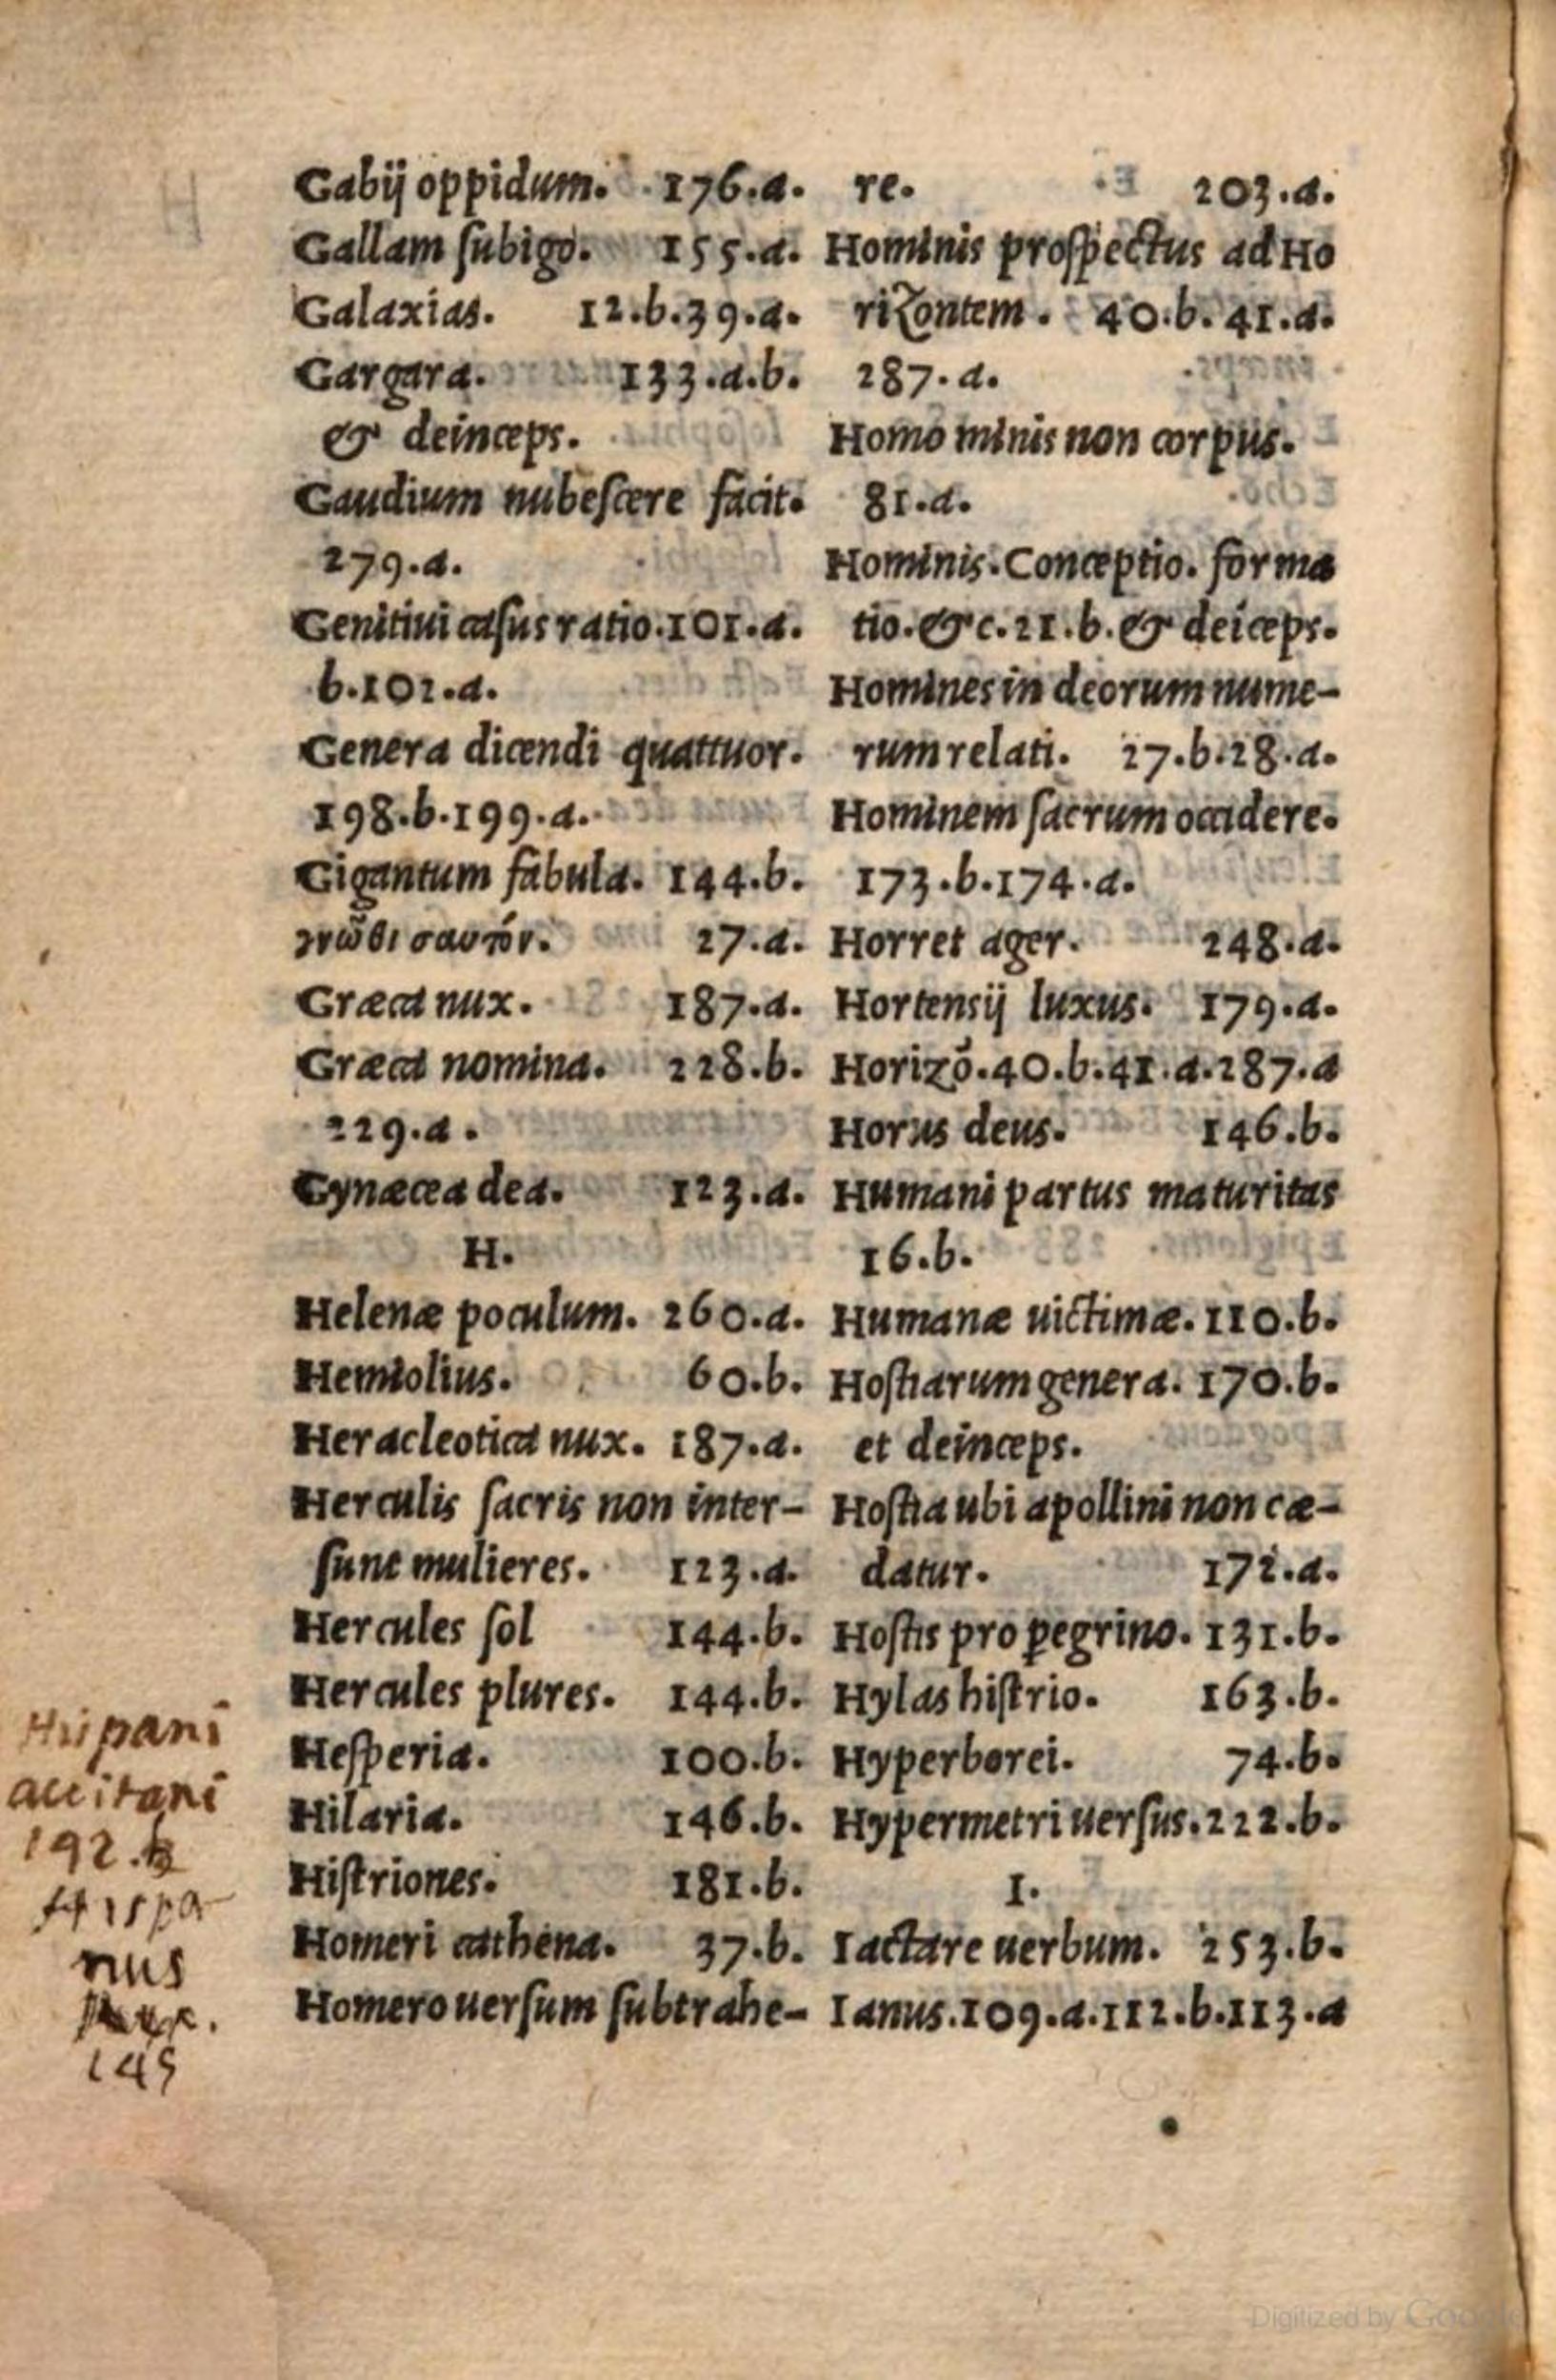 Gabij oppidum. 176.a.
Gallam ſubigo. 155.a.
Galaxias. 12.b.39.a.
Gargara. 133.a.b.
& deinceps.
Gaudium nubeſcere facit.
279.a.
Genitiui caſus ratio.101.a.
b.102.a.
Genera dicendi quattuor.
198.b.199.a.
Gigantum fabula. 144.b.
γνῶθι σαυτόν. 27.a.
Græca nux. 187.a.
Græca nomina. 228.b.
229.a.
Gynæcea dea. 123.a.
H.
Helenæ poculum. 260.a.
Hemiolius. 60.b.
Heracleotica nux. 187.a.
Herculis ſacris non inter-
ſunt mulieres. 123.a.
Hercules ſol 144.b.
Hercules plures. 144.b.
Heſperia. 100.b.
Hilaria. 146.b.
Hiſtriones. 181.b.
Homeri cathena. 37.b.
Homero uerſum ſubtrahe-
re. 203.a.
Hominis proſpectus ad Ho
rizontem. 40.b. 41.a.
287.a.
Homo minis non corpus.
81.a.
Hominis.Conceptio. forma
tio.&c.21.b.& deiceps.
Homines in deorum nume-
rum relati. 27.b.28.a.
Hominem ſacrum occidere.
173.b.174.a.
Horret ager. 248.a.
Hortensij luxus. 179.a.
Horizō.40.b.41.a.287.a
Horus deus. 146.b.
Humani partus maturitas
16.b.
Humanæ uictimæ.110.b.
Hoſtiarum genera. 170.b.
et deinceps.
Hoſtia ubi apollini non cæ-
datur. 172.a.
Hoſtis pro ꝑegrino. 131.b.
Hylas hiſtrio. 163.b.
Hyperborei. 74.b.
Hypermetri uerſus.222.b.
I.
Iactare uerbum. 253.b.
Ianus.109.a.112.b.113.a
Hispani
accitani
192.b
Hispa
nus
145
H
Digitized by Google